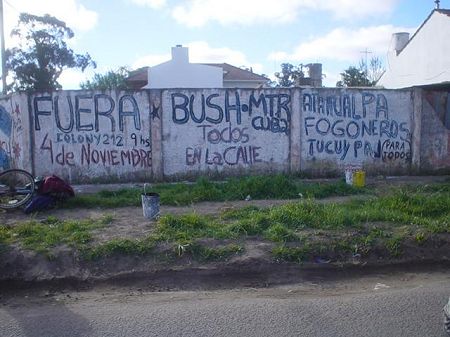 FUERA ★ BUSH·MTR
CUBA
COLON Y 212 9 hs
4 de NOVIEMBRE
Todos
EN LA CALLE
ATAHUALPA
FOGONEROS
TUCUYPAJ (PARA
TODOS)